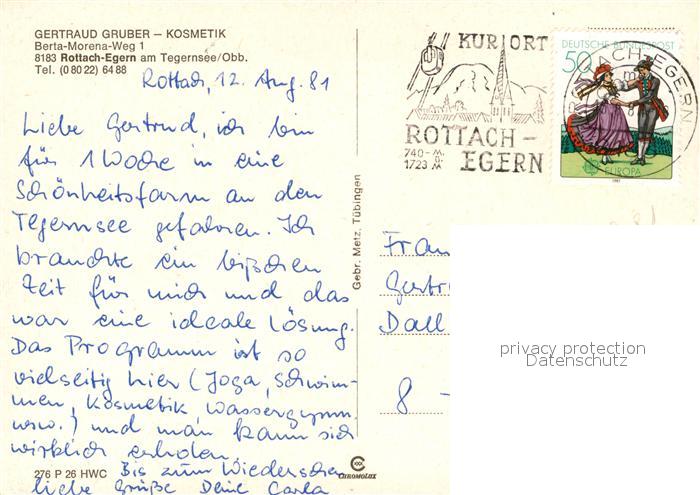 GERTRAUD GRUBER – KOSMETIK
Berta-Morena-Weg 1
8183 Rottach-Egern am Tegernsee/Obb.
Tel. (0 80 22) 64 88
Rottach, 12. Aug. 81
Liebe Gertrud, ich bin
für 1 Woche in eine
Schönheitsfarm an den
Tegernsee gefahren. Ich
brauchte ein bißchen
Zeit für mich und das
war eine ideale Lösung.
Das Programm ist so
vielseitig hier (Joga, Schwim-
men, Kosmetik, Wassergymn.
usw.) und man kann sich
wirklich erholen.
Bis zum Wiedersehen
liebe Grüße Deine Carla
276 P 26 HWC
CHROMOLUX
Gebr. Metz, Tübingen
KURORT
ROTTACH-
EGERN
740-M.
Ü.
1723 M
DEUTSCHE BUNDESPOST
50
EUROPA
1981
ROTTACH-EGERN
m
Frau
Gertr
Dall
8 -
privacy protection
Datenschutz